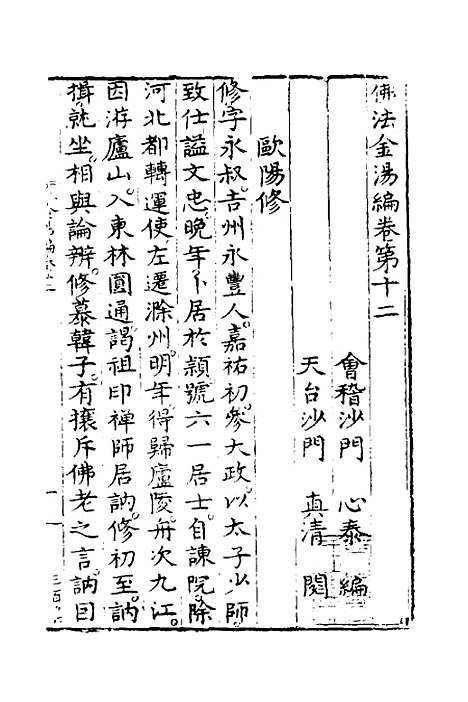 佛法金湯編卷第十二
會稽沙門 心泰 編
天台沙門 真清 閱
歐陽修
修字永叔。吉州永豐人。嘉祐初。參大政。以太子少師
致仕。謚文忠。晚年卜居於潁。號六一居士。自諫院除
河北都轉運使。左遷滁州。明年得歸廬陵。舟次九江。
因游廬山。入東林圓通。謁祖印禪師居訥。修初至。訥
揖就坐。相與論辨。修慕韓子。有攘斥佛老之言。訥曰